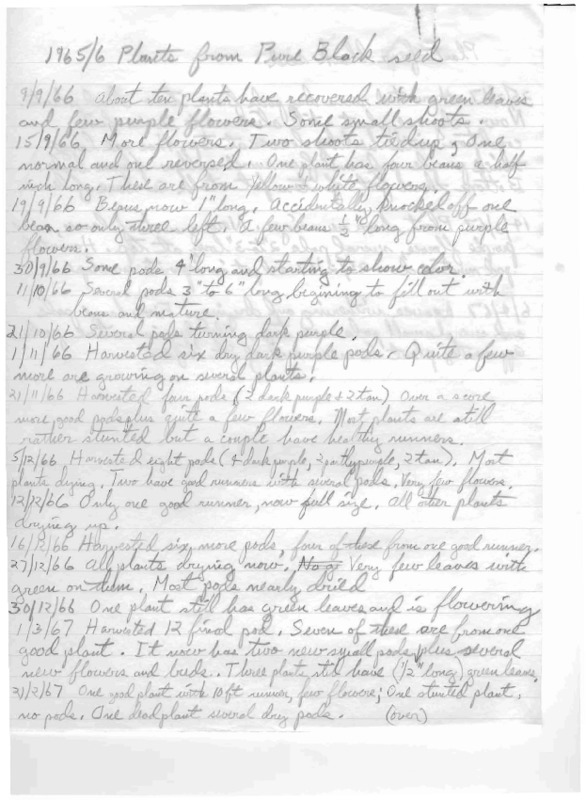 1965/6 Plants from Pure Black seed
9/9/66 About ten plants have recovered with green leaves
and few purple flowers. Some small shoots.
15/9/66 More flowers. Two shoots tied up; One
normal and one reversed. One plant has four beans a half
inch long. These are from yellow & white flowers.
19/9/66 Beans now 1" long. Accidentally knocked off one
bean so only three left. A few beans 1/2" long from purple
flowers.
30/9/66 Some pods 4" long and starting to show color.
11/10/66 Several pods 3" to 6" long begining to fill out with
beans and mature.
21/10/66 Several pods turning dark purple.
1/11/66 Harvested six dry dark purple pods. Quite a few
more are growing on several plants.
21/11/66 Harvested four pods (2 dark purple & 2 tan) Over a score
more good pods plus quite a few flowers. Most plants are still
rather stunted but a couple have healthy runners.
5/12/66 Harvested eight pods (4 dark purple, 2 partly purple, 2 tan). Most
plants dying. Two have good runners with several pods. Very few flowers.
12/12/66 Only one good runner, now full size. All other plants
drying up.
16/12/66 Harvested six more pods, four of these from one good runner.
27/12/66 All plants drying now. Very few leaves with
green on them. Most pods nearly dried
30/12/66 One plant still has green leaves and is flowering
1/3/67 Harvested 12 final pod. Seven of these are from one
good plant. It now has two new small pods plus several
new flowers and buds. Three plants still have (1/2" long) green leaves.
2/2/67 One good plant with 10 ft runner, few flowers; One stunted plant,
no pods. One dead plant several dry pods. (over)